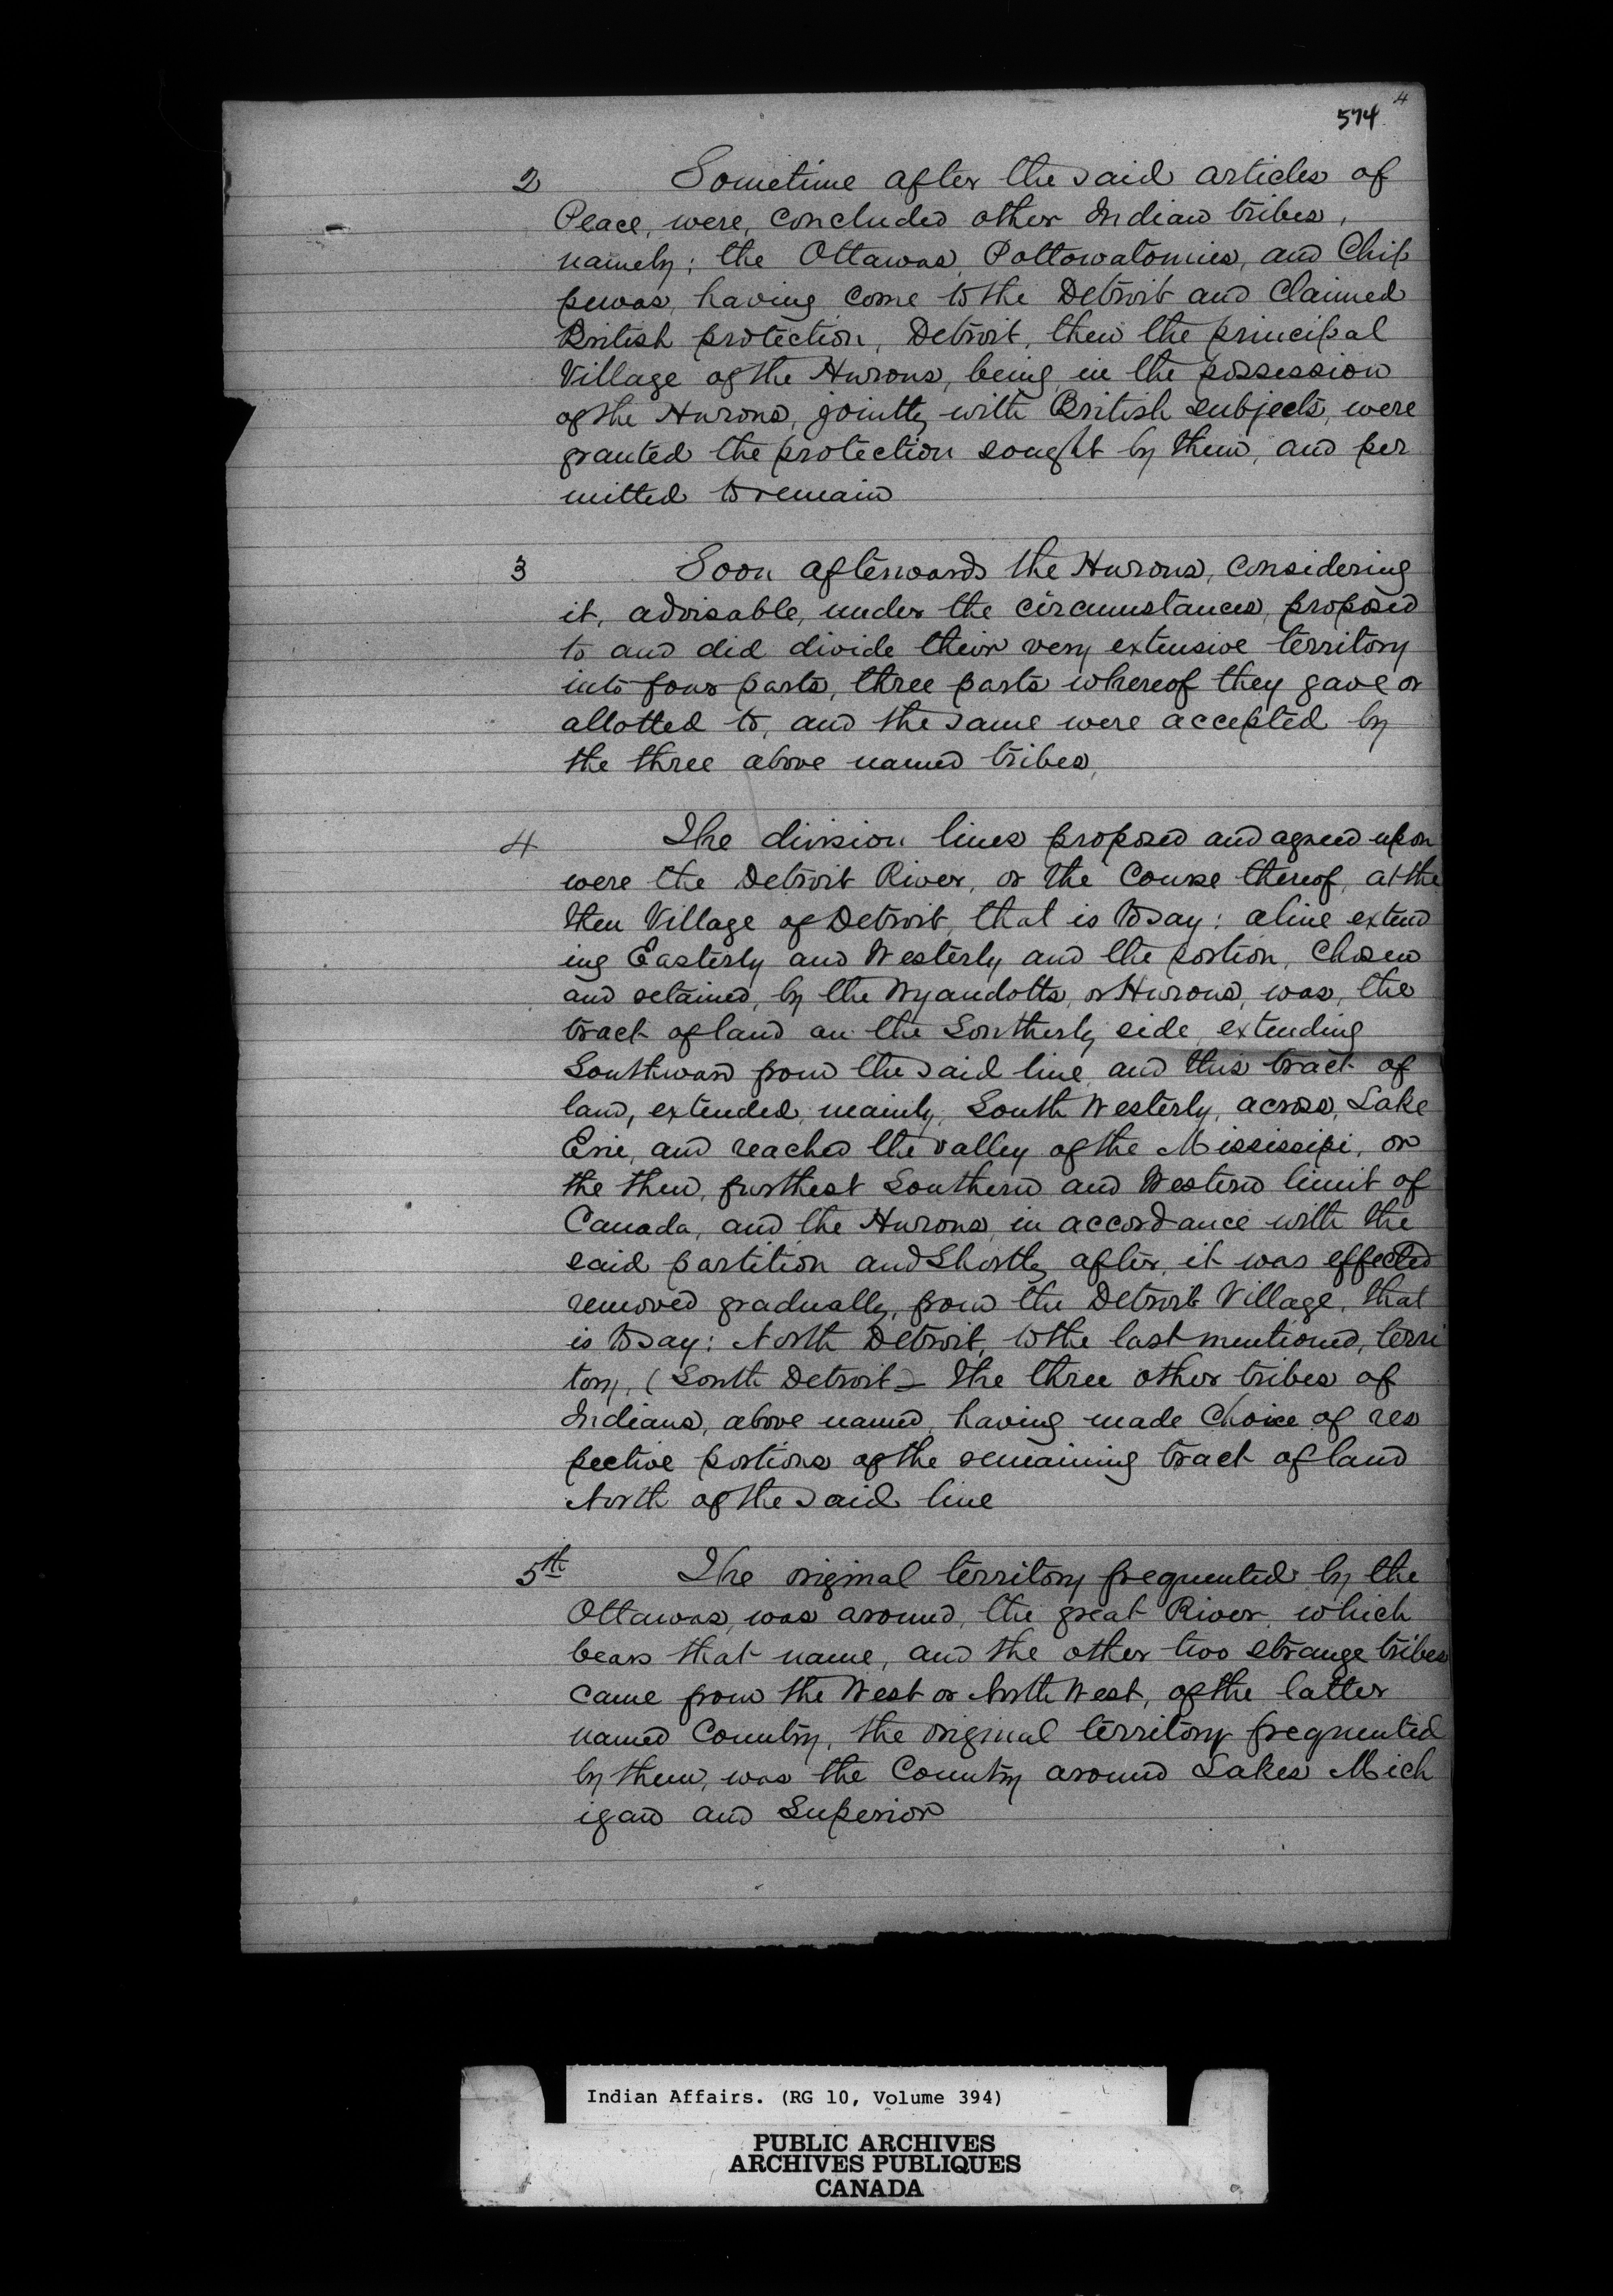 4
574
2 Sometime after the said articles of
Peace, were, concluded other Indian tribes,
namely; the Ottawas, Pottowatomies, and Chip
pewas, having come to the Detroit and Claimed
British protection, Detroit, then the principal
Village of the Hurons, being in the possession
of the Hurons, jointly with British subjects, were
granted the protection sought by them, and per
mitted to remain
3 Soon afterwards the Hurons, considering
it, advisable, under the circumstances, proposed
to and did divide their very extensive territory
into four parts, three parts whereof they gave or
allotted to, and the same were accepted by
the three above named tribes,
4 The division lines proposed and agreed upon
were the Detroit River, or the Course thereof, at the
then Village of Detroit, that is to say: a line extend
ing Easterly and Westerly and the portion, chosen
and retained, by the Wyandotts, or Hurons, was, the
tract of land on the Southerly side, extending
Southward from the said line, and this tract of
land, extended, mainly, South Westerly, across, Lake
Erie, and reached the valley of the Mississipi, or
the then, furthest Southern and Western limit of
Canada, and the Hurons, in accordance with the
said partition and Shortly after, it was effected
removed gradually, from the Detroit Village, that
is to say: North Detroit, to the last mentioned, terri
tory, (South Detroit - The three other tribes of
Indians, above named, having made Choice of res
pective portions of the remaining tract of land
North of the said line
5th The original territory frequented by the
Ottawas, was around, the great River, which
bears that name, and the other two strange tribes
came from the West or North West, of the latter
named Country, the original territory frequented
by them, was the Country around Lakes Mich
igan and Superior
Indian Affairs. (RG 10, Volume 394)
PUBLIC ARCHIVES
ARCHIVES PUBLIQUES
CANADA